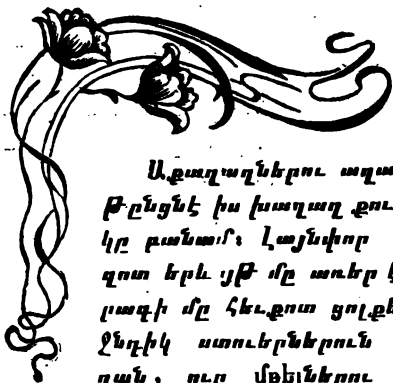 Աքաղաղներու աղա
Թընցնէ իս խաղաղ քու
կը բանամ։ Լայնփոր
գոտ երև յթ մը առեր կ
րագի մը հեւքոտ ցոլքե
Ջնդիկ ստուերներուն
ուր